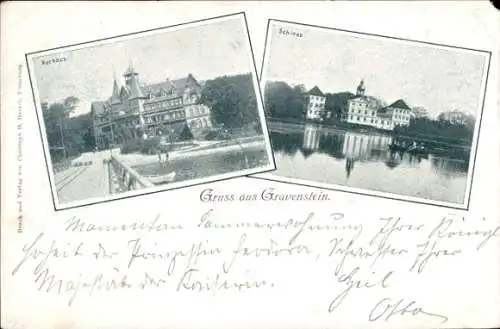 Kurhaus.
Schloss.
Druck und Verlag von Christoph
Gruss aus Gravenstein.
Momentan Sommerwohnung Ihrer Königl
Hoheit der Prinzessin Feodora, Schwester Ihrer
Majestät der Kaiserin.
Otto